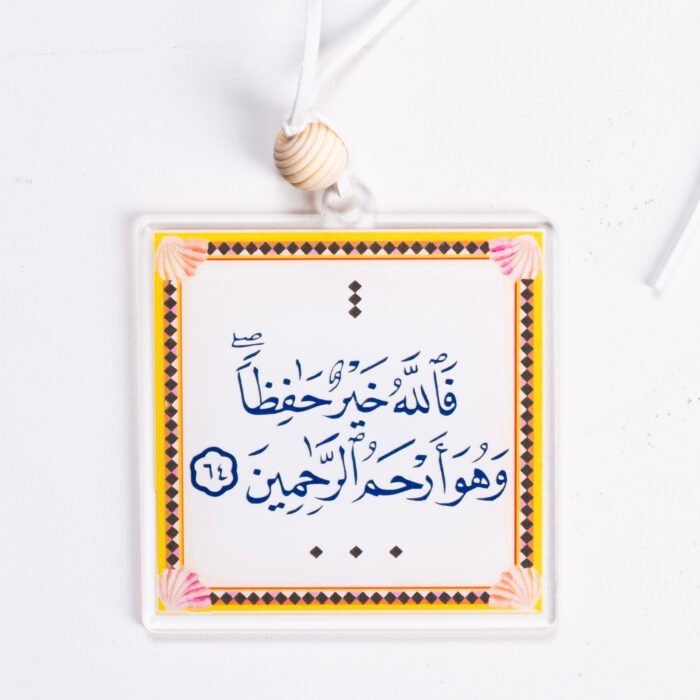 فَٱللَّهُ خَيْرٌ حَـٰفِظًاۖ
وَهُوَ أَرْحَمُ ٱلرَّٰحِمِينَ ٦٤